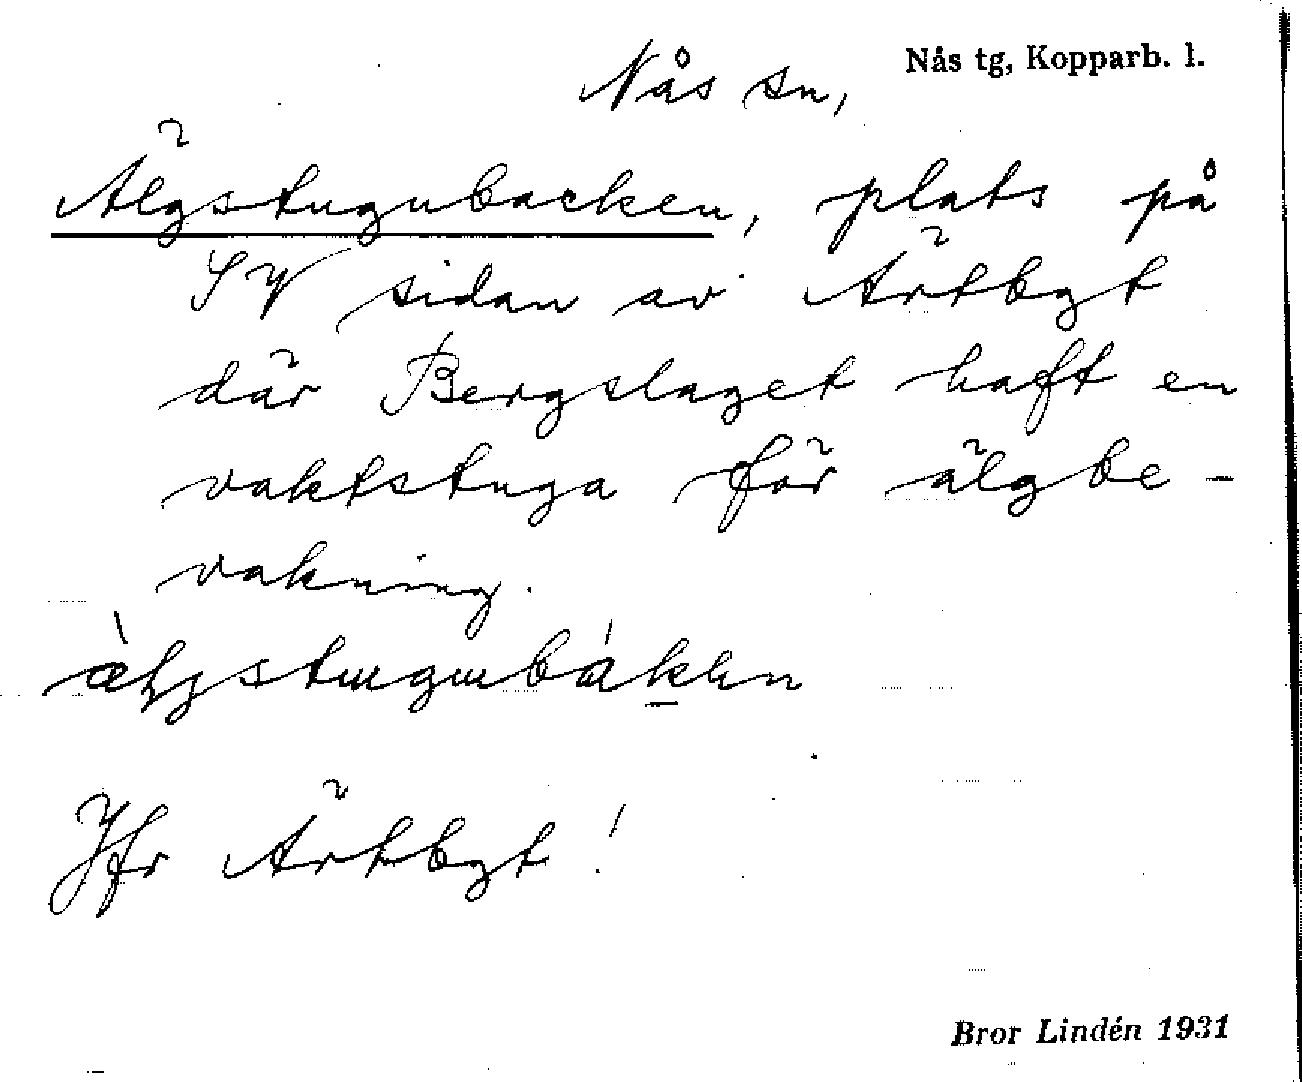 Nås tg, Kopparb. l.
Nås sn,
Älgstugubacken, plats på
SV sidan av Ärtbgt
där Bergslaget haft en
vaktstuga för älgbe-
vakning.
Jfr Ärtbgt!
Bror Lindén 1931